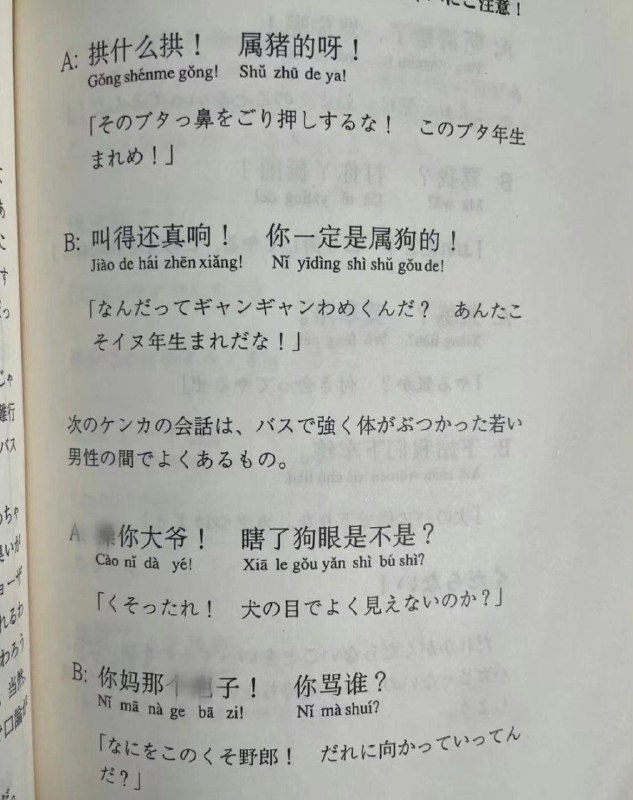 にご注意！
A: 拱什么拱！ 属猪的呀！
Gǒng shénme gǒng! Shǔ zhū de ya!
「そのブタっ鼻をごり押しするな！ このブタ年生
まれめ！」
B: 叫得还真响！ 你一定是属狗的！
Jiào de hái zhēn xiǎng! Nǐ yīdìng shì shǔ gǒu de!
「なんだってギャンギャンわめくんだ？ あんたこ
そイヌ年生まれだな！」
次のケンカの会話は、バスで強く体がぶつかった若い
男性の間でよくあるもの。
A 你大爷！ 瞎了狗眼是不是？
Cào nǐ dà yé! Xiā le gǒu yǎn shì bú shì?
「くそったれ！ 犬の目でよく見えないのか？」
B: 你妈那子！ 你骂谁？
Nǐ mā nà ge bā zi! Nǐ mà shuí?
「なにをこのくそ野郎！ だれに向かっていってん
だ？」